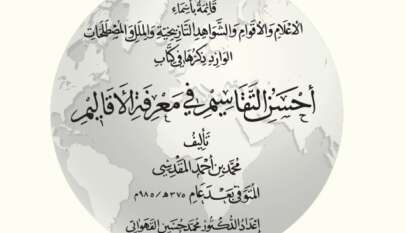 قائمة بأسماء
الأعلام والأقوام والشواهد التاريخية والملل والمصطلحات
الوارد ذكرها في كتاب
أحسن التقاسيم في معرفة الأقاليم
تأليف
محمد بن أحمد المقدسي
المتوفى بعد عام ٣٧٥هـ/٩٨٥م
إعداد الدكتور محمد حسين القهواتي